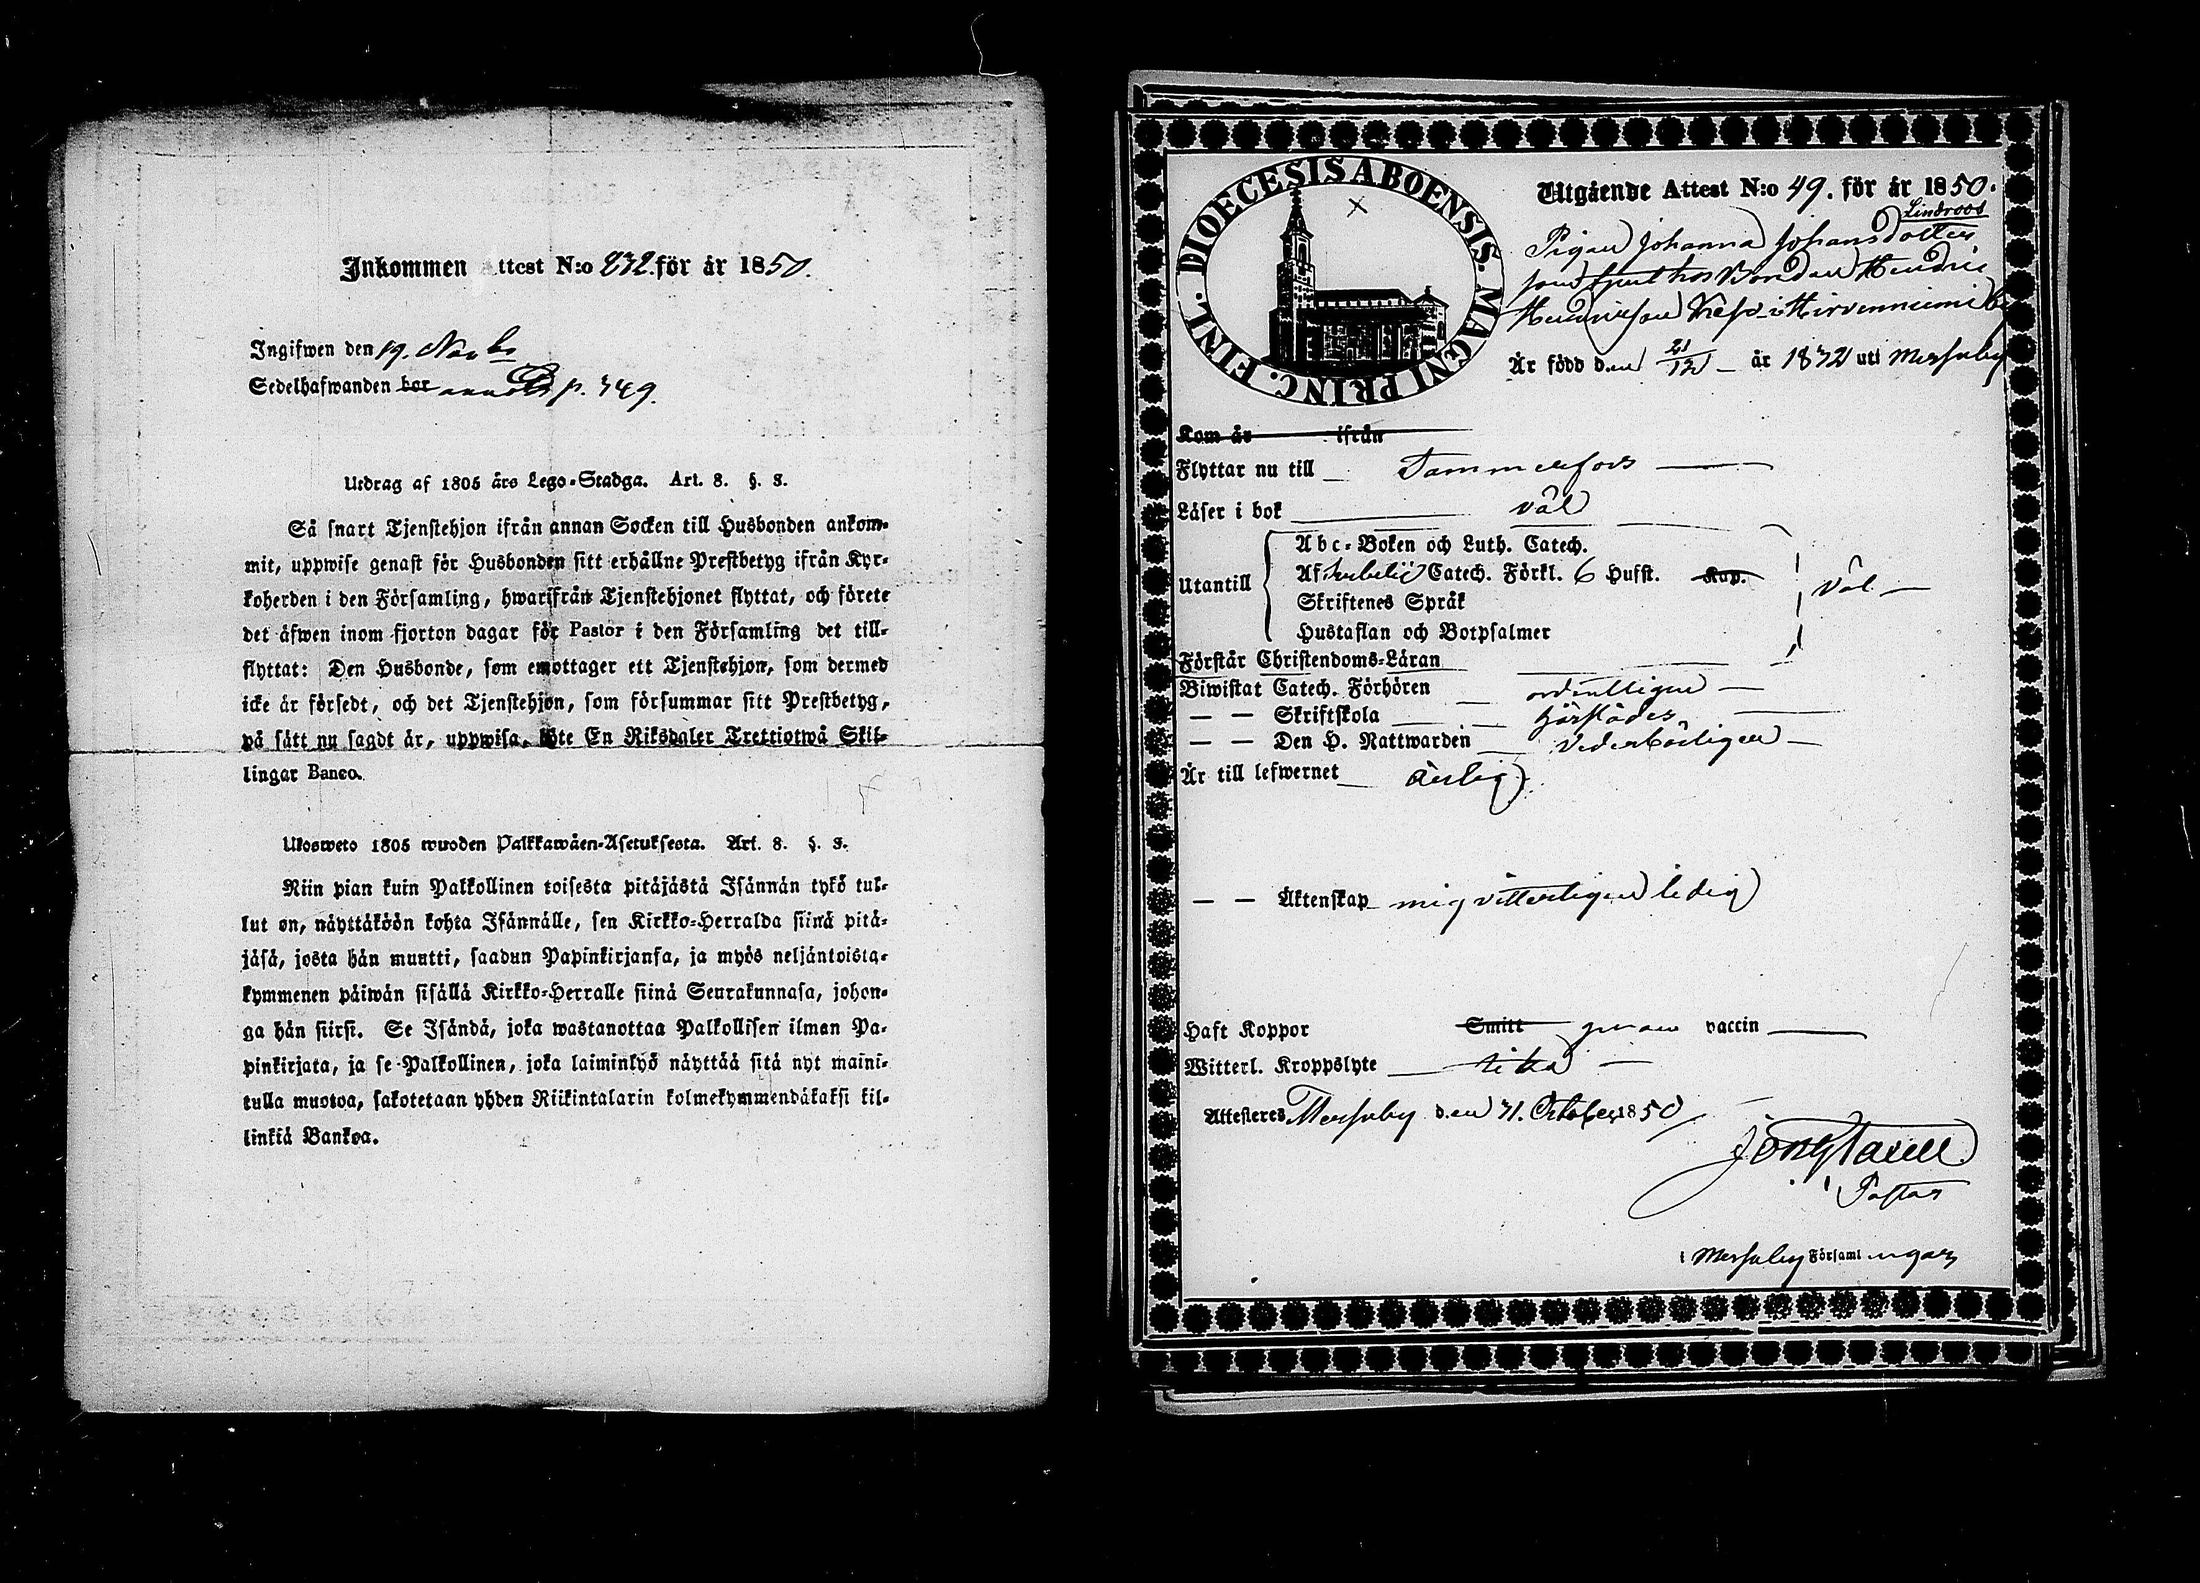 Inkommen Attest N:o 232. för år 1850.
Ingifwen den 19. Novbr
Sedelhafwanden bor p. 349.
Utdrag af 1805 års Lego-Stadga. Art. 8. §. 8.
Så snart Tjenstehjon ifrån annan Socken till Husbonden ankom-
mit, uppwise genast för Husbonden sitt erhållne Prestbetyg ifrån Kyr-
koherden i den Församling, hwarifrån Tjenstehjonet flyttat, och förete
det äfwen inom fjorton dagar för Pastor i den Församling det till-
flyttat: Den Husbonde, som emottager ett Tjenstehjon, som dermed
icke är försedt, och det Tjenstehjon, som försummar sitt Prestbetyg,
på sätt nu sagdt är, uppwisa, böte En Riksdaler Trettiotwå Skil-
lingar Banco.
Ulosweto 1805 wuoden Palkkawäen-Asetuksesta. Art. 8. §. 8.
Niin pian kuin Palkollinen toisesta pitäjästä Isännän tykö tul-
lut on, näyttäköön kohta Isännälle, sen Kirkko-Herralda siinä pitä-
jäsä, josta hän muutti, saadun Papinkirjansa, ja myös neljäntoista-
kymmenen päiwän sisällä Kirkko-Herralle siinä Seurakunnasa, johon-
ga hän siirsi. Se Isändä, joka wastanottaa Palkollisen ilman Pa-
pinkirjata, ja se Palkollinen, joka laiminlyö näyttää sitä nyt maini-
tulla muotoa, sakotetaan yhden Riikintalarin kolmekymmendäkaksi kil-
linkiä Bankoa.
DIOECESIS ABOENSIS. MAGNI PRINC. FINL.
Utgående Attest N:o 49. för år 1850.
Lindroos
Pigan Johanna Johansdotter
som tjent hos Bonden Hendric
Hendricsson i Hirvenniemi by
Är född den 21/12 år 1832 uti Messuby
Kom år ifrån
Flyttar nu till Tammerfors
Läser i bok väl
Utantill
Abc-Boken och Luth. Catech.
Af Svebelii Catech. Förkl. 6 Hufst. Kap.
Skriftenes Språk
Hustaflan och Botpsalmer
väl
Förstår Christendoms-Läran
Biwistat Catech. Förhören ordentligen
— — Skriftskola härstädes
— — Den H. Nattwarden vederbörligen
Är till lefwernet ärlig
— — Äktenskap mig vitterligen ledig
Haft Koppor Smitt genom vaccin
Witterl. Kroppslyte
Attesteres Messuby den 31. October 1850
Pastor
i Messuby Församlingar